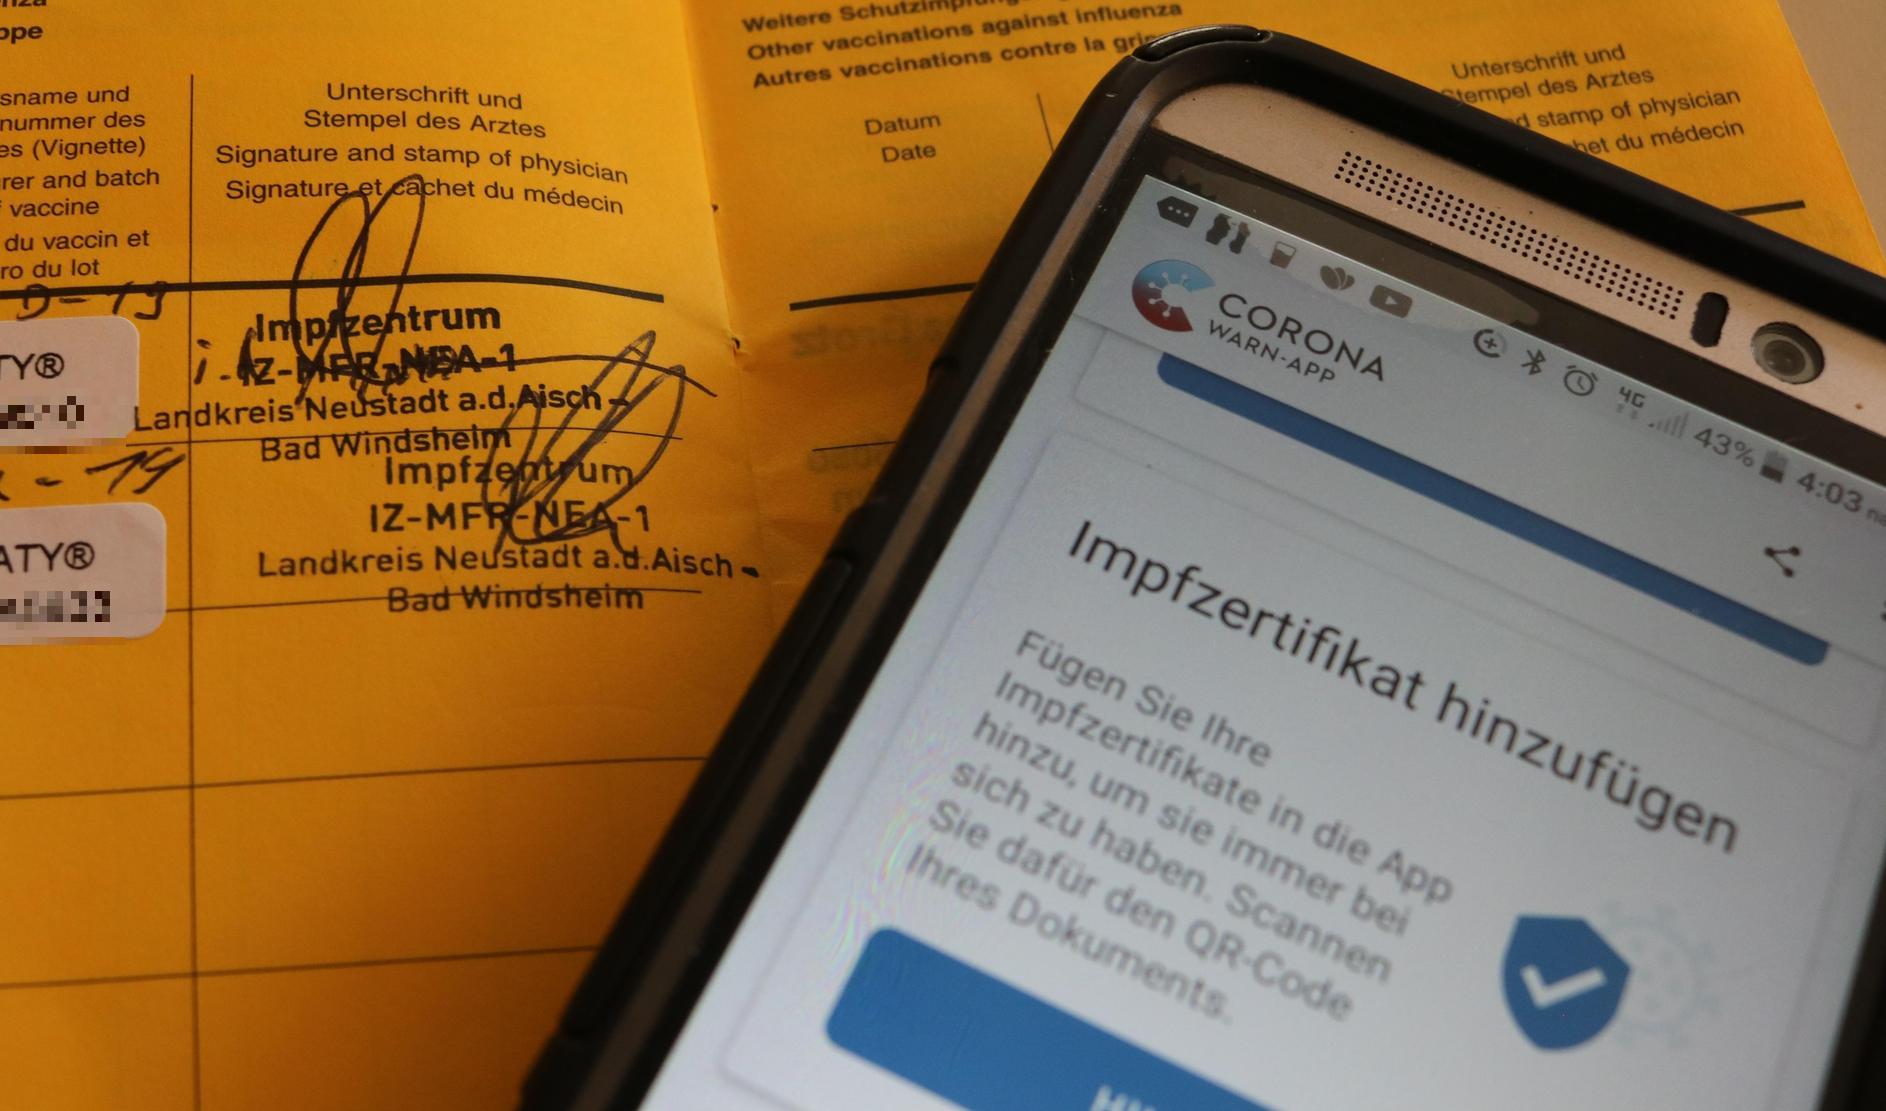 ppe
sname und
nummer des
es (Vignette)
rer and batch
vaccine
du vaccin et
ro du lot
Unterschrift und
Stempel des Arztes
Signature and stamp of physician
Signature et cachet du médecin
TY®
Impfzentrum
IZ-MFR-NEA-1
Landkreis Neustadt a.d.Aisch -
Bad Windsheim
- 19
ATY®
Impfzentrum
IZ-MFR-NEA-1
Landkreis Neustadt a.d.Aisch -
Bad Windsheim
Weitere
Other vaccinations against influenza
Autres vaccinations contre la
Datum
Date
Unterschrift und
Stempel des Arztes
stamp of physician
du médecin
4G 43% 4:03
CORONA
WARN-APP
Impfzertifikat hinzufügen
Fügen Sie Ihre
Impfzertifikate in die App
hinzu, um sie immer bei
sich zu haben. Scannen
Sie dafür den QR-Code
Ihres Dokuments.